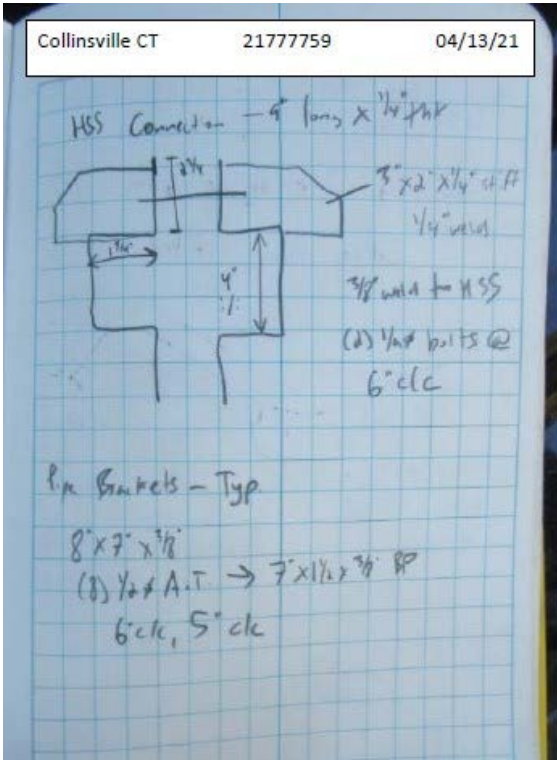 Collinsville CT 21777759 04/13/21
HSS Connection - 9" long x 1/4" thk
2 1/4
3" x 2" x 1/4" stiff
1/4" weld
1 3/4"
4"
3/8" weld to HSS
(2) 1/2ø bolts @
6" c/c
Brackets - Typ
8" x 7" x 3/8"
(8) 1/2ø A.T → 7" x 1 1/2 x 3/8" BP
6" c/c, 5" c/c